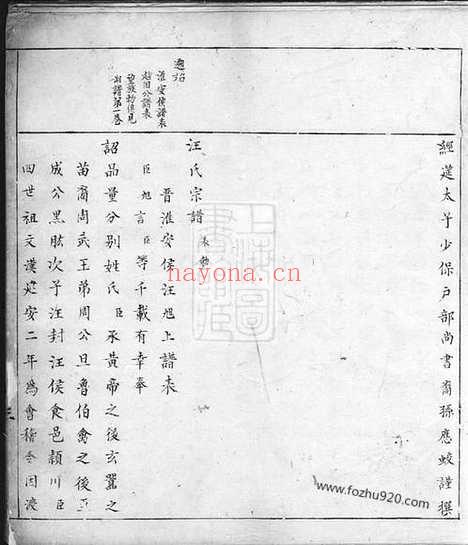 經筵太子少保戶部尚書裔孫應蛟謹撰
汪氏宗譜 表勅
晉淮安侯汪旭上譜表
臣旭言臣等千載有幸奉
詔品量分別姓氏臣承黃帝之後玄囂之
苗裔周武王弟周公旦魯伯禽之後至
成公黑肱次子汪封汪侯食邑潁川臣
四世祖文漢建安二年爲會稽令因渡
淮安侯譜表
越國公譜表
望族勅俱見
前譜第一卷
hayona.cn
www.fozhu920.com